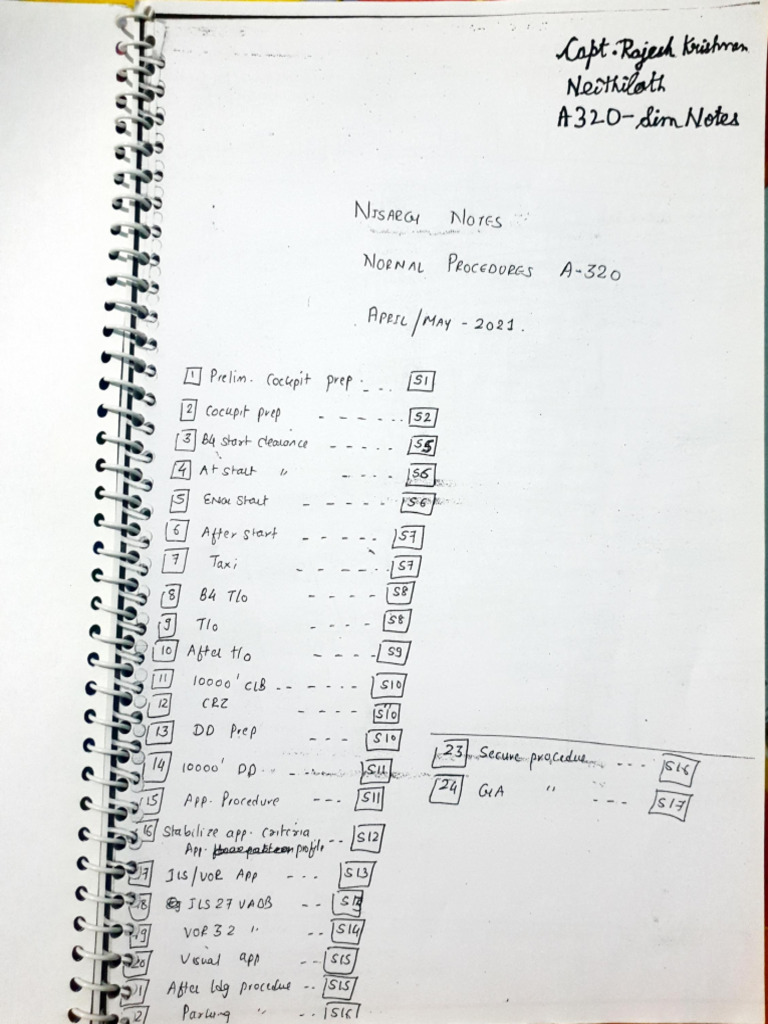 Capt. Rajesh Krishnan
Neithilath
A320-Sim Notes
NISARG NOTES
NORMAL PROCEDURES A-320
APRIL/MAY - 2021.
1 Prelim. Cockpit prep. - - .. S1
2 Cockpit prep - - - - - .. S2
3 B4 start clearance - - - - - S5
4 At start " - - - - S5
5 Eng Start - - - - - S6
6 After start - - - - - S7
7 Taxi - - - - - S7
8 B4 T/o - - - - S8
9 T/o - - - - S8
10 After t/o - - - - S9
11 10000' CLB .. - - - - S10
12 CRZ - - - - S10
13 DD Prep - - - - S10
14 10000' DD .. - - - - S11
15 App. Procedure - - - S11
16 Stabilize app. criteria - .. S12
App. profile
17 ILS/VOR App - - - S13
18 ILS 27 VABB - .. S13
19 VOR 32 " - .. S14
20 Visual app - .. S15
21 After ldg procedure - .. S15
Parking " - .. S16
23 Secure procedue - - - S16
24 GA " - - - S17